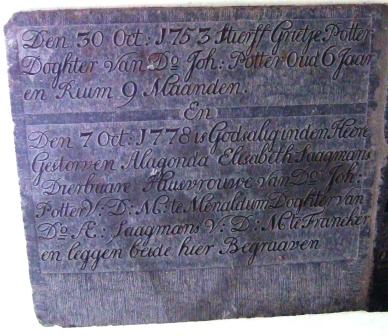 Den 30 Oct: 1753 stierff Grietje Potter
Doghter van Do Joh: Potter Oud 6 Jaar
en Ruim 9 Maanden.
En
Den 7 Oct: 1778 is Godsalig in den Heere
Gestorven Alagonda Elisabeth Saagmans
Dierbaare Huisvrouwe van Do Joh:
Potter V: D: M: te Menaldum Doghter van
Do Æ: Saagmans V: D: M: te Franeker
en leggen beide hier Begraaven